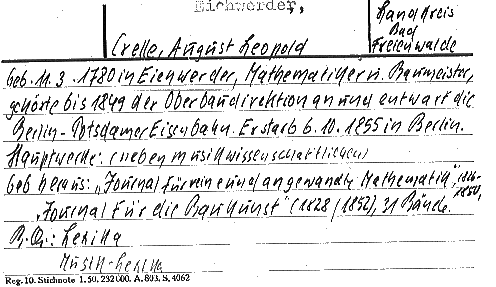 Eichwerder,
Landkreis
Bad
Freienwalde
Crelle, August Leopold
Geb. 11.3.1780 in Eichwerder, Mathematiker u. Baumeister,
gehörte bis 1849 der Oberbaudirektion an und entwarf die
Berlin-Potsdamer Eisenbahn. Er starb 6.10.1855 in Berlin.
Hauptwerke: (neben musikwissenschaftlichen)
Gab heraus: „Journal für reine und angewandte Mathematik",
„Journal für die Baukunst" (1828/1852), 31 Bände.
B.Qu.: Lexika
Musik-Lexika
Reg. 10. Stichnote 1. 50. 232000. A. 803. S. 4062